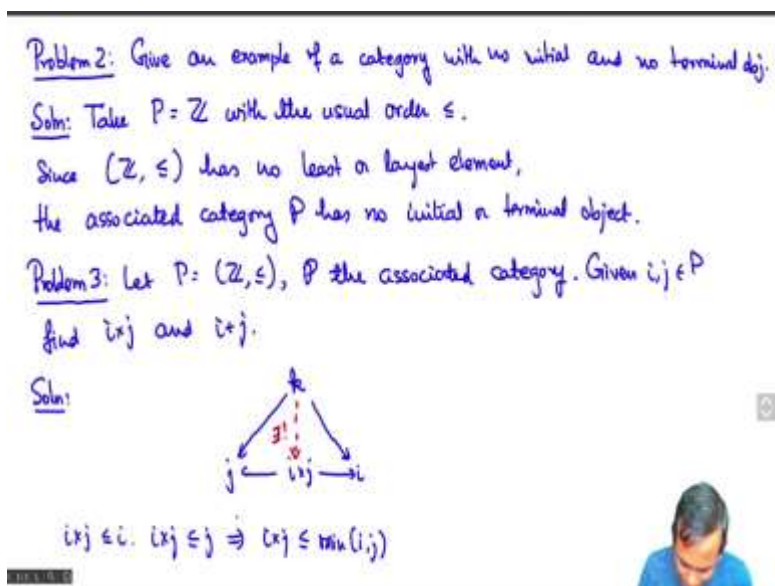 Problem 2: Give an example of a category with no initial and no terminal obj.
Soln: Take P = ℤ with the usual order ≤.
Since (ℤ, ≤) has no least or largest element,
the associated category P has no initial or terminal object.
Problem 3: Let P = (ℤ, ≤), P the associated category. Given i, j ∈ P
find i×j and i+j.
Soln:
k
∃!
j ← i×j → i
i×j ≤ i. i×j ≤ j ⇒ i×j ≤ min(i,j)